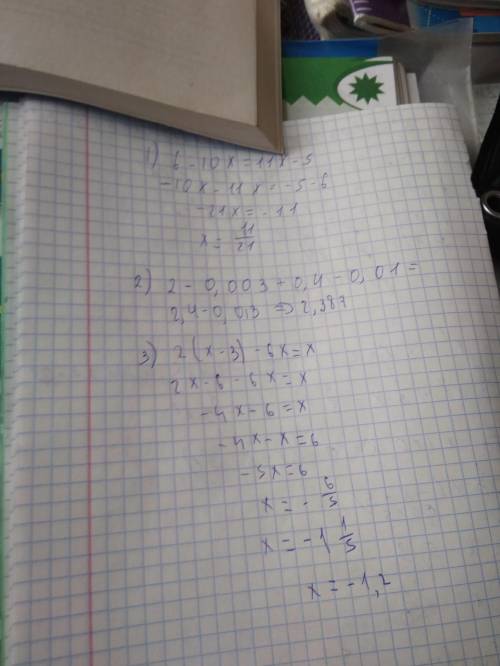 1) 6 - 10x = 11x - 5
-10x - 11x = -5 - 6
-21x = -11
x = 11/21
2) 2 - 0,003 + 0,4 - 0,01 =
2,4 - 0,013 => 2,387
3) 2(x - 3) - 6x = x
2x - 6 - 6x = x
-4x - 6 = x
-4x - x = 6
-5x = 6
x = - 6/5
x = -1 1/5
x = -1,2